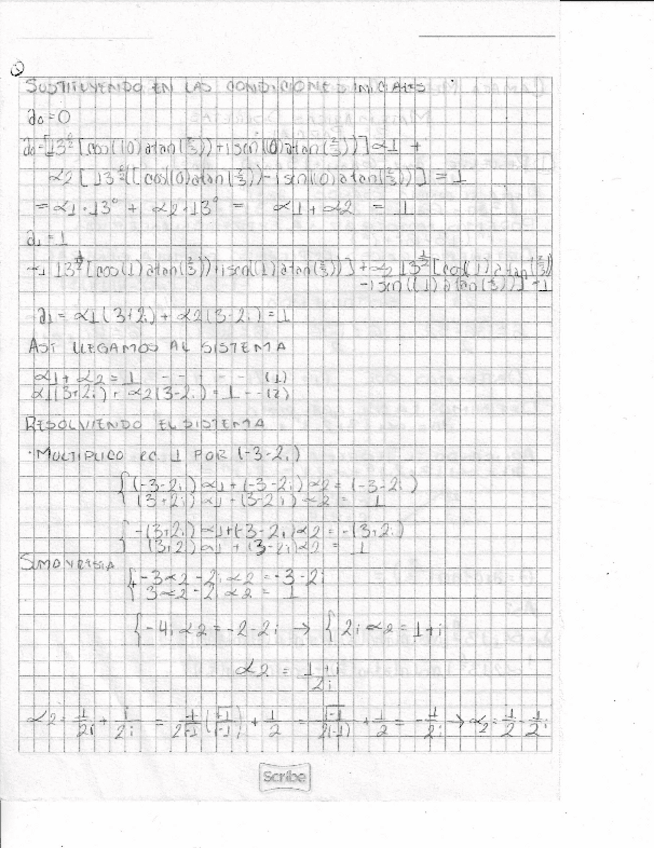 SUSTITUYENDO EN LAS CONDICIONES INICIALES
a₀=0
a₀=[13^{0/2}[cos((0)atan(2/3))+isen((0)atan(2/3))]]α1 +
α2[13^{0/2}([cos((0)atan(2/3))-isen((0)atan(2/3))]] = 1
=α1·13⁰ + α2·13⁰ = α1+α2 = 1
a₁=1
13^{1/2}[cos((1)atan(2/3))+isen((1)atan(2/3))]+α2 13^{1/2}[cos((1)atan(2/3))
-isen((1)atan(2/3))]=1
a₁= α1(3+2i)+α2(3-2i)=1
ASÍ LLEGAMOS AL SISTEMA
α1+α2=1 - - - - - - (1)
α1(3+2i)+α2(3-2i)=1 - - (2)
RESOLVIENDO EL SISTEMA
·MULTIPLICO EC 1 POR (-3-2i)
{(-3-2i)α1+(-3-2i)α2=(-3-2i)
(3+2i)α1+(3-2i)α2 = 1
{-(3+2i)α1+(-3-2i)α2=-(3+2i)
(3+2i)α1+(3-2i)α2 = 1
SUMO
{-3α2-2iα2=-3-2i
3α2-2iα2= 1
{-4iα2=-2-2i → {2iα2=1+i
α2 = \frac{1+i}{2i}
α2= \frac{1}{2i}+\frac{i}{2i} = \frac{1}{2√-1}(\frac{√-1}{√-1})+\frac{1}{2} = \frac{√-1}{2(-1)}+\frac{1}{2} = -\frac{1}{2i} → α2=\frac{1}{2}-\frac{1}{2}i
Scribe